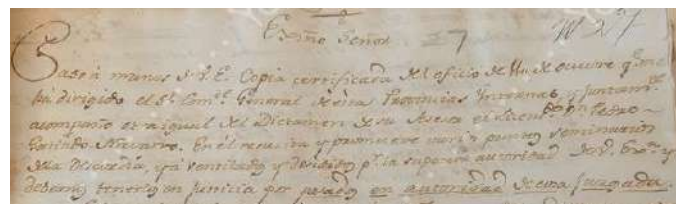 Exmo Señor 27 N 27
Pasó á manos d V.E. Copia certificada del oficio de 11 de Octubre qe. me
ha dirigido el Sr. Comte. General de esta Provincias Internas, y juntamte.
acompaño otra igual del Dictamen de su Asesor el Licendo. Dn. Pedro
Galindo Navarro. En el y promueve varios puntos
dela Discordia, ya ventilados y decididos pr. la superior autoridad de V. Exa. y
debemos tenerlos en justicia por pasados en autoridad de cosa juzgada.